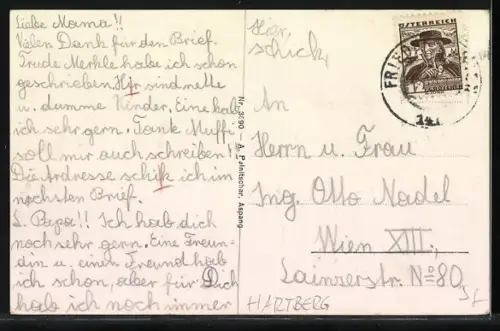 Liebe Mama!!
Vielen Dank für den Brief.
Trude Merkle habe ich schon
geschrieben. Hir sind nette
u. dumme Kinder. Eine hab
ich sehr gern. Tante Muffi
soll mir auch schreiben!
Die Ardresse schik ich im
nächsten Brief.
L. Papa!! Ich hab dich
noch sehr gern. Eine Freun-
din u. einen Freund hab
ich schon, aber für Dich
hab ich noch immer
Nr. 3690 - A. Palnitschar, Aspang
Hier,
schick,
ÖSTERREICH
12
FRIE
An
Herrn u. Frau
Ing. Otto Nadel
Wien XIII.,
Lainzerstr. No 80
HARTBERG